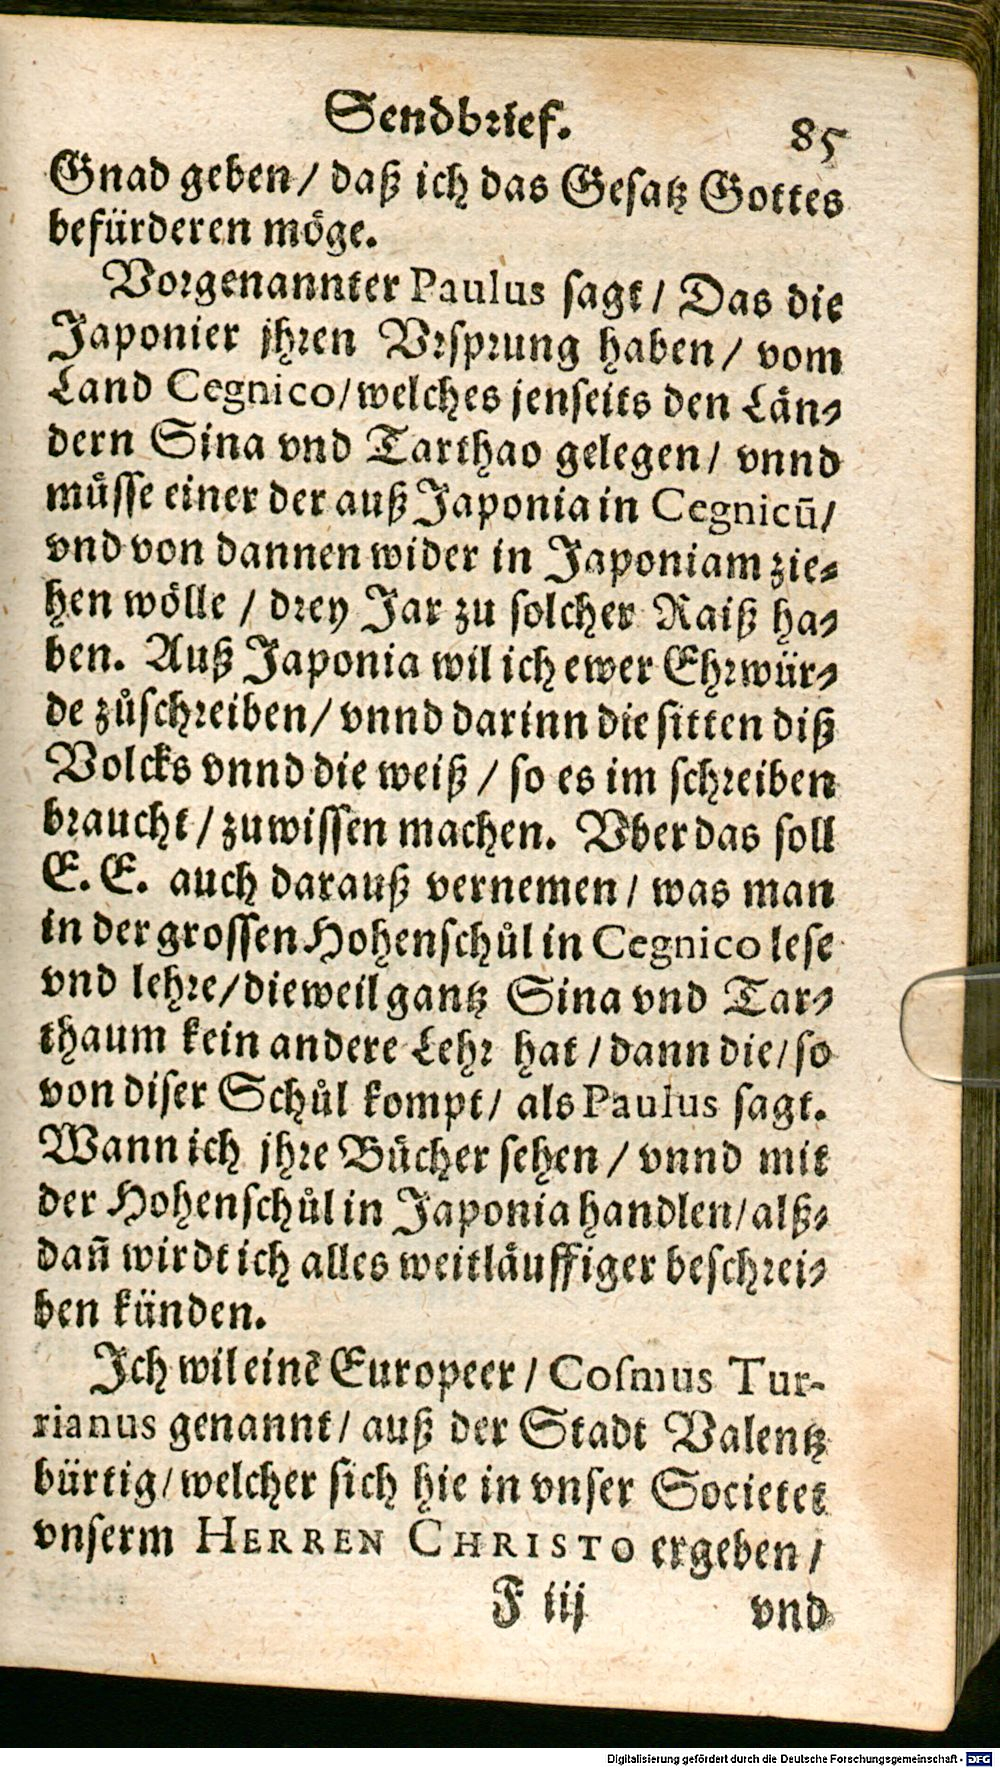 Sendbrief. 85
Gnad geben / daß ich das Gesatz Gottes
befürderen möge.
Vorgenannter Paulus sagt / Das die
Japonier jhren Vrsprung haben / vom
Land Cegnico / welches jenseits den Län-
dern Sina vnd Tarthao gelegen / vnnd
müsse einer der auß Japonia in Cegnicū /
vnd von dannen wider in Japoniam zie-
hen wölle / drey Jar zu solcher Raiß ha-
ben. Auß Japonia wil ich ewer Ehrwür-
de zůschreiben / vnnd darinn die sitten diß
Volcks vnnd die weiß / so es im schreiben
braucht / zuwissen machen. Vber das soll
E. E. auch darauß vernemen / was man
in der grossen Hohenschůl in Cegnico lese
vnd lehre / dieweil gantz Sina vnd Tar-
thaum kein andere Lehr hat / dann die / so
von diser Schůl kompt / als Paulus sagt.
Wann ich jhre Bücher sehen / vnnd mit
der Hohenschůl in Japonia handlen / alß-
dañ wirdt ich alles weitläuffiger beschrei-
ben künden.
Ich wil einē Europeer / Cosmus Tur-
rianus genannt / auß der Stadt Valentz
bürtig / welcher sich hie in vnser Societet
vnserm HERREN CHRISTO ergeben /
F iij vnd
Digitalisierung gefördert durch die Deutsche Forschungsgemeinschaft - DFG